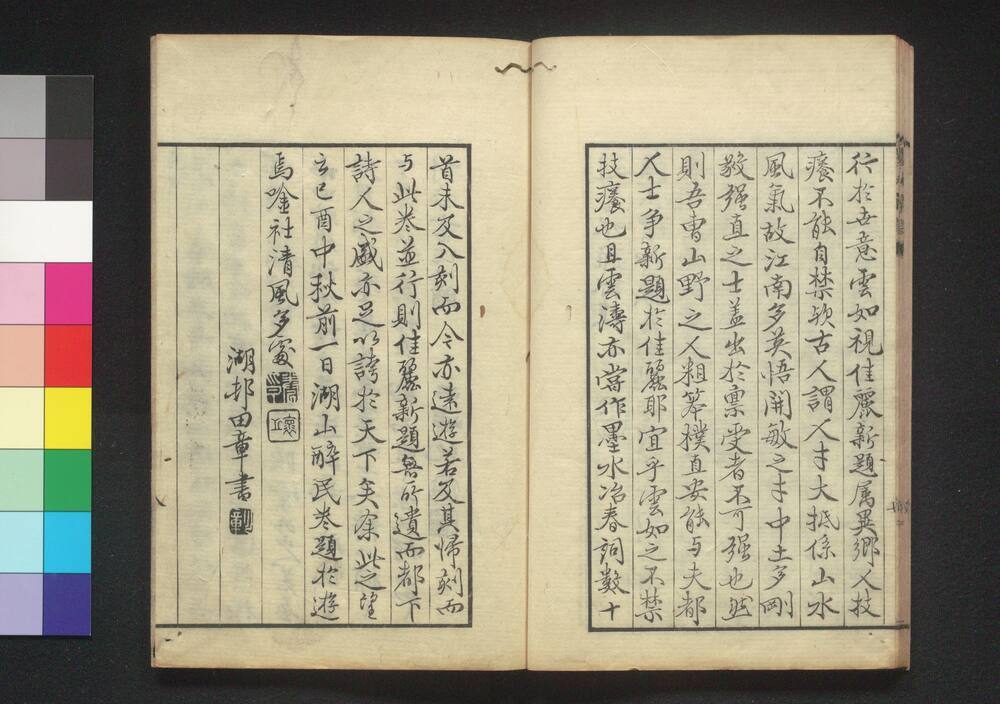 行於世意雲如視佳麗新題属異郷人技
癢不能自禁欤古人謂人才大抵係山水
風氣故江南多英悟開敏之才中土多剛
敢强直之士盖出於禀受者不可强也然
則吾曹山野之人粗笨樸直安能与夫都
人士争新題於佳麗耶宜乎雲如之不禁
技癢也且雲濤亦當作墨水冶春詞數十
首未及入刻而今亦遠遊若及其帰刻而
与此卷並行則佳麗新題無所遺而都下
詩人之盛亦足以誇於天下矣余此之望
云己酉中秋前一日湖山酔民卷題於遊
焉唫社清風多処
湖邨由章書